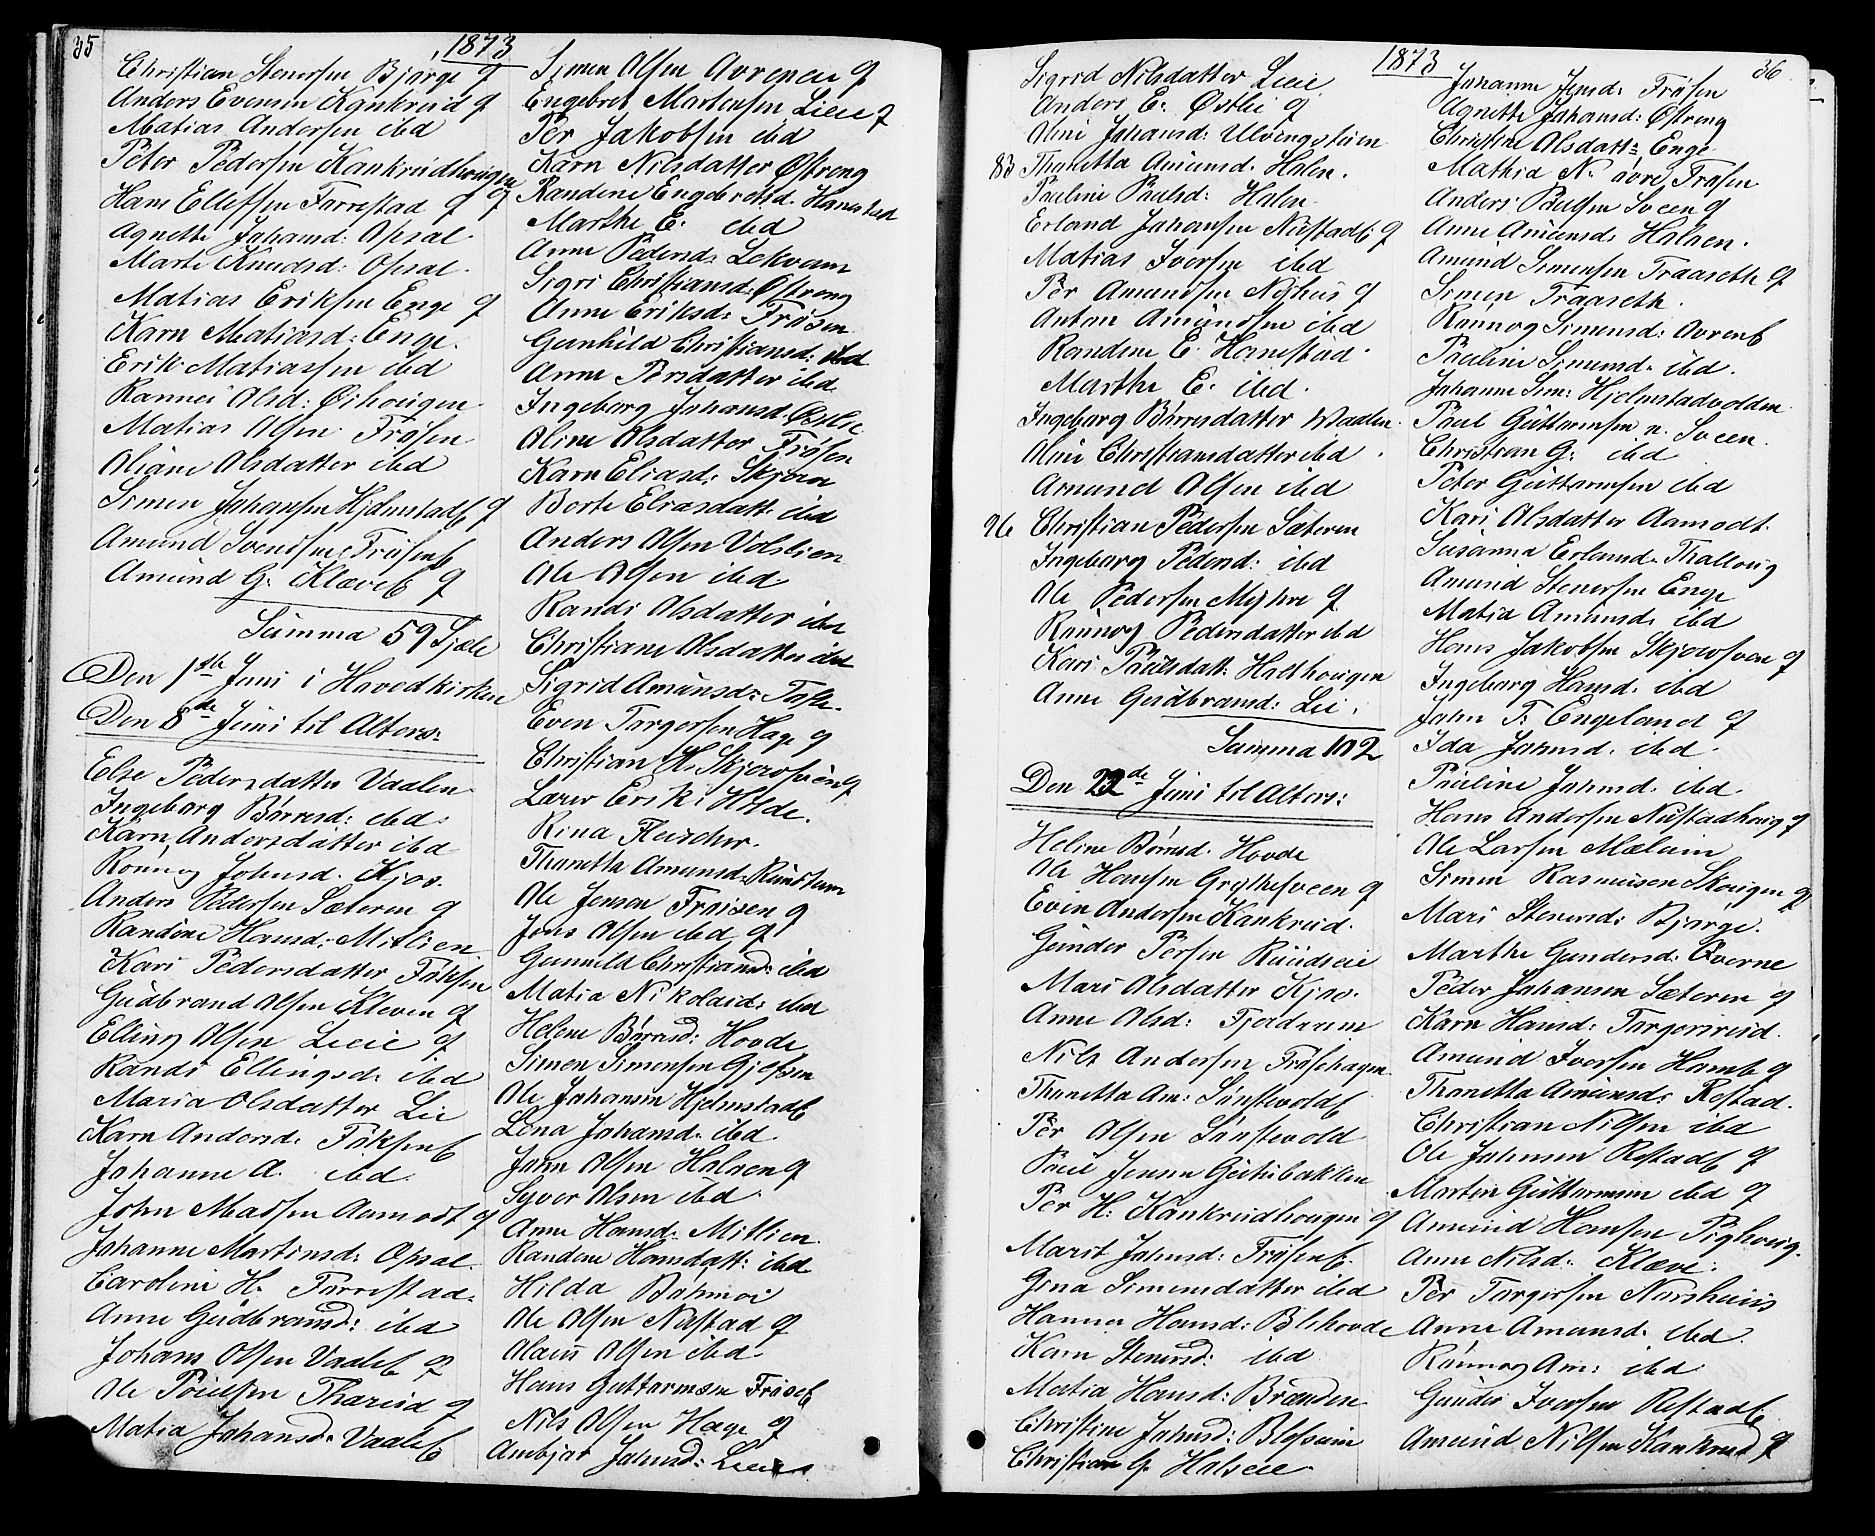 35
1873
Christian Stenersen Bjørge q
Anders Evensen Kankrud q
Matias Andersen ibd
Peter Pedersen Kankrudhougen q
Hans Ellefsen Farrestad q
Agnethe Johansd: Opsal
Marte Knudsd: Opsal.
Matias Eriksen Enge q
Karn Matiasd: Enge.
Erik Matiassen ibd
Rannei Olsd: Øihougen
Matias Olsen Frøsen
Oliane Olsdatter ibd
Simen Johansen Hjelmstadb q
Amund Svendsen Frøsenb
Amund G. Klæveb q
Summa 59 Sjæle
Den 1ste Juni i Hovedkirken
Den 8de Juni til Alters:
Else Pedersdatter Vaalen
Ingeborg Børresd: ibd.
Karn Andersdatter ibd
Rønnog Johnsd. Kjos.
Anders Pedersen Sæteren q
Randine Hansd: Mitlien
Kari Pedersdatter Fôksen
Gudbrand Olsen Kleven q
Elling Olsen Leeie q
Randi Ellingsd. ibd
Maria Olsdatter Lie
Karn Andersd. Fôksenb
Johanne A. ibd.
John Madsen Aamodt q
Johanne Martinsd: Opsal
Caroline H. Farrestad.
Anne Gudbransd: ibd
Johans Olsen Vaaleb q
Ole Poulsen Tharud q
Matia Johansd. Vaaleb
Simen Olsen Avrenen q
Engebret Martensen Lieie q
Per Jakobsen ibd
Karn Nilsdatter Østreng
Randine Engebretsd. Hanestad
Marthe E. ibd
Anne Pedersd. Lekvam
Sigri Christiansd: Østreng
Anne Eriksd: Frøsen
Gunhild Christiansd: ibd
Anne Persdatter ibd
Ingeborg Johansd. Østlie
Oline Olsdatter Frøsen
Karn Eliasd: Skjeren
Berte Eliasdatt: ibd
Anders Olsen Volslien
Ole Olsen ibd
Randi Olsdatter ibd
Christiane Olsdatter ibd
Sigrid Amunsd:
Even Torgersen Hage q
Christian H. Skjerofsveen q
Larer Erik: Hilde.
Rina Fleischer.
Thonetta Amunsd.
Ole Jensen Frøisen q
Jens Olsen ibd q
Gunnild Christiansd: ibd
Matia Nikolaid: ibd
Helene Børresd: Hovde
Simen Simensen
Ole Johansen Hjelmstadb
Lena Johansd. ibd.
John Olsen Halsen q
Syver Olsen ibd
Anne Hansd. Mitlien.
Randine Hansdatt: ibd
Hilda
Ole Olsen Nustad q
Olaus Olsen ibd
Hans Guttormsen Frøseb
Nils Olsen Hage q
Ambjør Johnsd:
1873
36
Sigrid Nilsdatter Leeie
Anders E. Østlie q
Oline Johansd: Ulvengstuen
83 Thonetta Amunsd. Halen.
Pauline Paulsd: Halen.
Erland Johansen Nustadb q
Matias Iversen ibd
Per Amundsen Nyhus q
Anton Amundsen ibd
Randine E. Hanestad.
Marthe E. ibd.
Ingeborg Børresdatter Waalen.
Oline Christiansdatter ibd.
Amund Olsen ibd
96 Christian Pedersen Sæteren
Ingeborg Pedersd: ibd
Ole Pedersen q
Rønnog Pedersdatter ibd
Kari Paulsdatt: Halthougen
Anne Gudbransd: Lie.
Summa 102
Den 22de Juni til Alters:
Helene Børresd. Hovde
Ole Hansen Grythesveen q
Even Andersen Kankrud.
Gunder Persen Ruudseie
Mari Olsdatter Kjos.
Anne Olsd:
Nils Andersen Frøsehagen
Thonetta Am: Sønstevoldb
Per Olsen Sønstevold
Poul Jensen
Per H. Kankrudhougen q
Marit Johnsd: Frøsenb.
Gina Simensdatter ibd
Hanna Hansd: Blihovde
Karn Stenersd: ibd
Matia Hansd: Brænden
Christine Johnsd:
Christian G.
Johanne Jensd: Frøsen
Agnette Johansd: Østreng
Christine Olsdatt: Enge
Mathia N. øvre Frøsen
Anders Paulsen Sveen q
Anne Amunsd. Halsen.
Amund Simensen Traaseth q
Simen Traaseth.
Rønnog Simensd: Avrenb
Pauline Simensd. ibd.
Johanne Sim: Hjelmstadvolden
Paul Guttormsen n. Sveen.
Christian G. ibd
Peter Guttormsen ibd
Kari Olsdatter Aamodt.
Susanna Erlansd. Thalloug
Amund Stenersen Enge
Matia Amunsd. ibd
Hans Jakobsen Skjerofsveen q
Ingeborg Hansd. ibd
John T. Engeland q
Ida Johnsd. ibd.
Pauline Johnsd. ibd
Hans Andersen Nustadhoug q
Ole Larsen Mælum
Simen Rasmusen Skougen q
Mari Stenersd: Bjørge.
Marthe Gundersd. Øverne
Peder Johansen Sæteren q
Karn Hansd: Torgersrud.
Amund Iversen Homb q
Thonetta Amunsd: Røstad.
Christian Nilsen ibd
Ole Johansen Røstadb q
Morten Guttormsen ibd q
Amund Hansen Pighoug.
Anne Nilsd. Klæve.
Per Torgersen Norshuus
Anne Amunsd. ibd.
Rønnog Am: ibd
Gunder Iversen Røstadb
Amund Nilsen Kankrud q